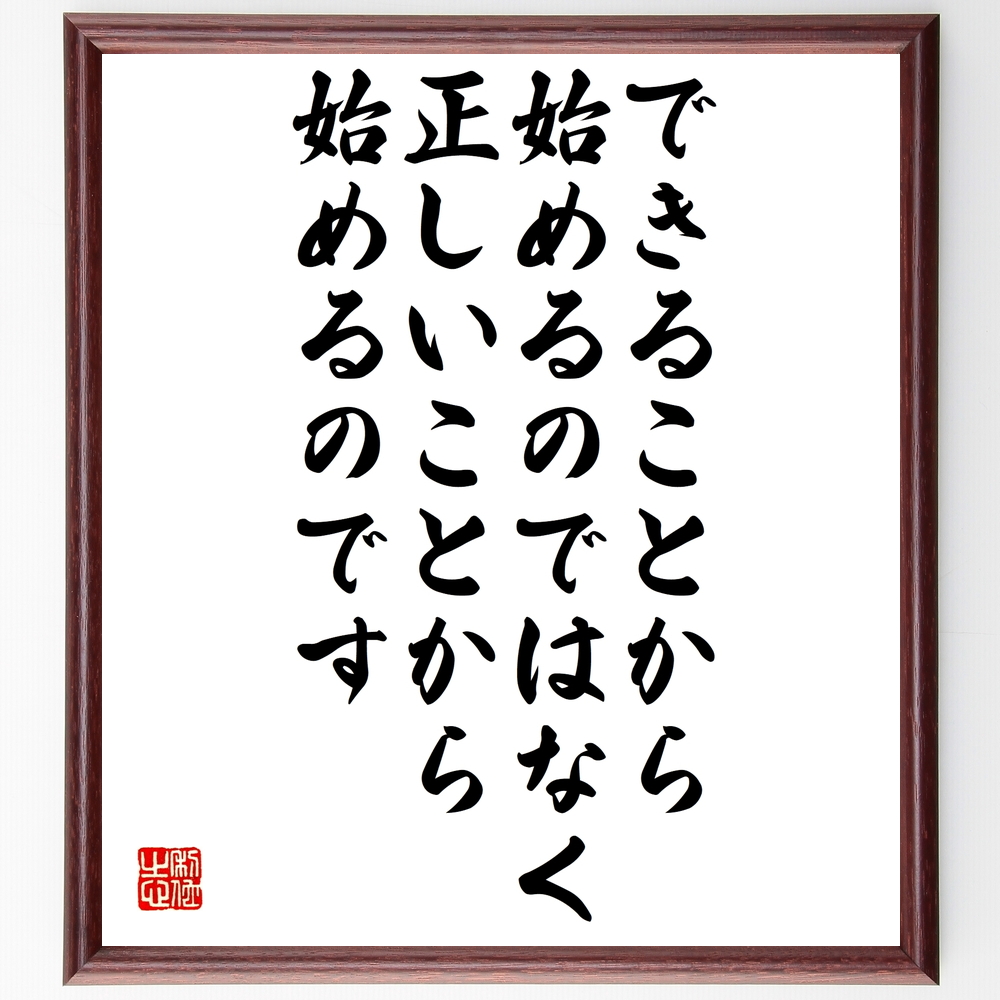 できることから
始めるのではなく
正しいことから
始めるのです